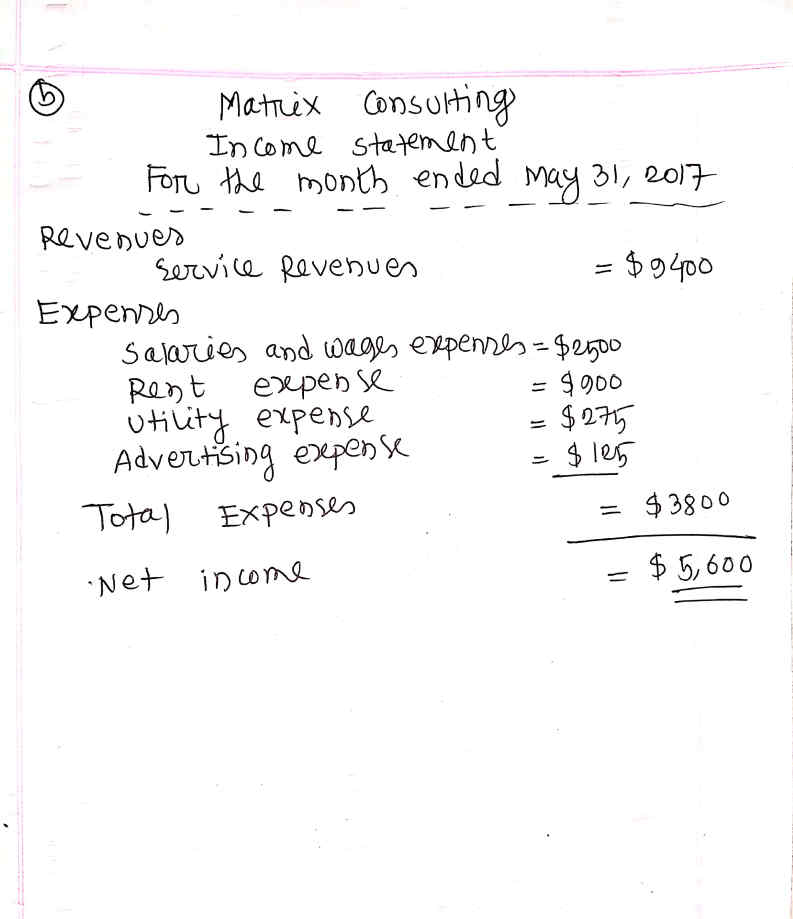 b
Matrix Consulting
Income statement
For the month ended May 31, 2017
Revenues
Service Revenues = $9400
Expenses
Salaries and wages expenses = $2500
Rent expense = $900
Utility expense = $275
Advertising expense = $125
Total Expenses = $3800
Net income = $5,600